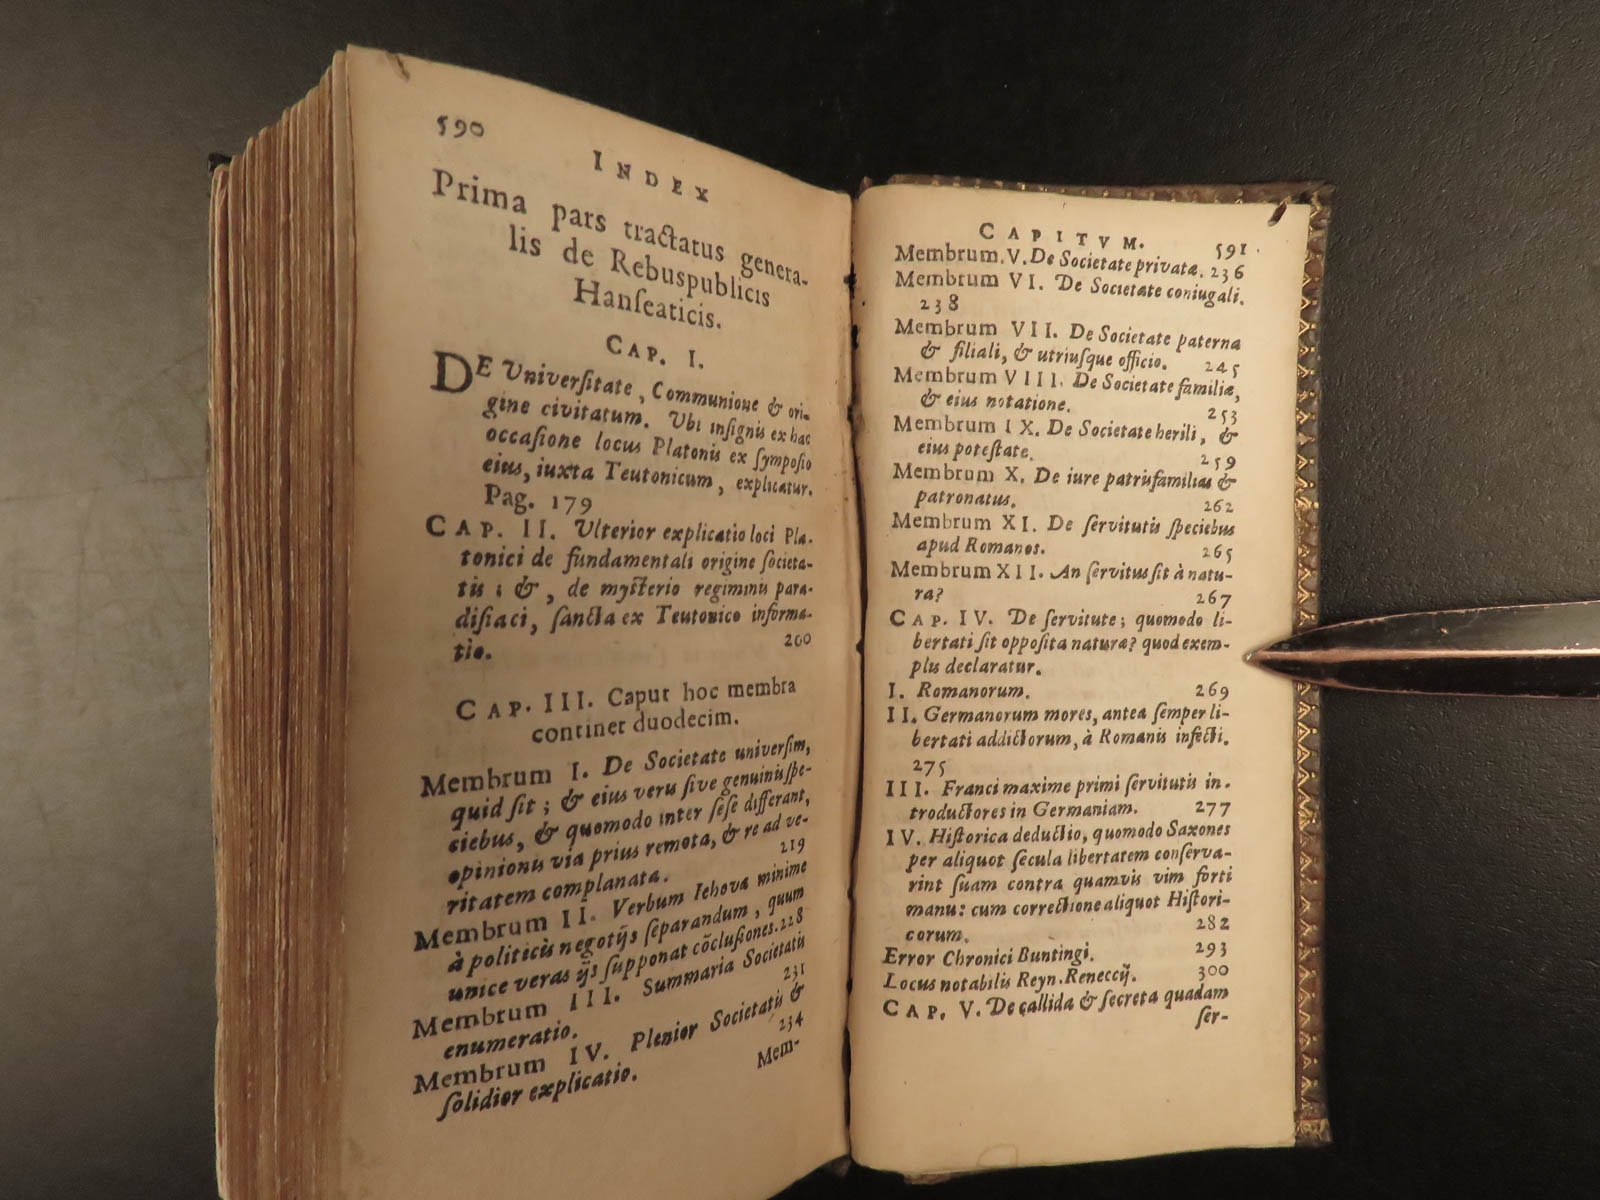 590
INDEX
Prima pars tractatus genera-
lis de Rebuspublicis
Hanſeaticis.
CAP. I.
DE Univerſitate, Communione & ori-
gine civitatum. Ubi inſignis ex hac
occaſione locus Platonis ex ſympoſio
eius, iuxta Teutonicum, explicatur.
Pag. 179
CAP. II. Ulterior explicatio loci Pla-
tonici de fundamentali origine ſocieta-
tis; &, de myſterio regiminis para-
diſiaci, ſancta ex Teutonico informa-
tio. 200
CAP. III. Caput hoc membra
continet duodecim.
Membrum I. De Societate univerſim,
quid ſit; & eius veris ſive genuinis ſpe-
ciebus, & quomodo inter ſeſe differant,
opinionis via prius remota, & re ad ve-
ritatem complanata. 219
Membrum II. Verbum Iehova minime
à politicis negotijs ſeparandum, quum
unice veras ijs ſupponat cõcluſiones. 228
Membrum III. Summaria Societatis
enumeratio. 231
Membrum IV. Plenior Societatis &
ſolidior explicatio. 234
Mem-
CAPITVM. 591
Membrum. V. De Societate privata. 236
Membrum VI. De Societate coniugali.
238
Membrum VII. De Societate paterna
& filiali, & utriuſque officio. 245
Membrum VIII. De Societate familiæ,
& eius notatione. 253
Membrum IX. De Societate herili, &
eius poteſtate. 259
Membrum X. De iure patrisfamilias &
patronatus. 262
Membrum XI. De ſervitutis ſpeciebus
apud Romanos. 265
Membrum XII. An ſervitus ſit à natu-
ra? 267
CAP. IV. De ſervitute; quomodo li-
bertati ſit oppoſita naturæ? quod exem-
plis declaratur.
I. Romanorum. 269
II. Germanorum mores, antea ſemper li-
bertati addictorum, à Romanis infecti.
275
III. Franci maxime primi ſervitutis in-
troductores in Germaniam. 277
IV. Hiſtorica deductio, quomodo Saxones
per aliquot ſecula libertatem conſerva-
rint ſuam contra quamvis vim forti
manu: cum correctione aliquot Hiſtori-
corum. 282
Error Chronici Buntingi. 293
Locus notabilis Reyn. Reneccij. 300
CAP. V. De callida & ſecreta quadam
ſer-